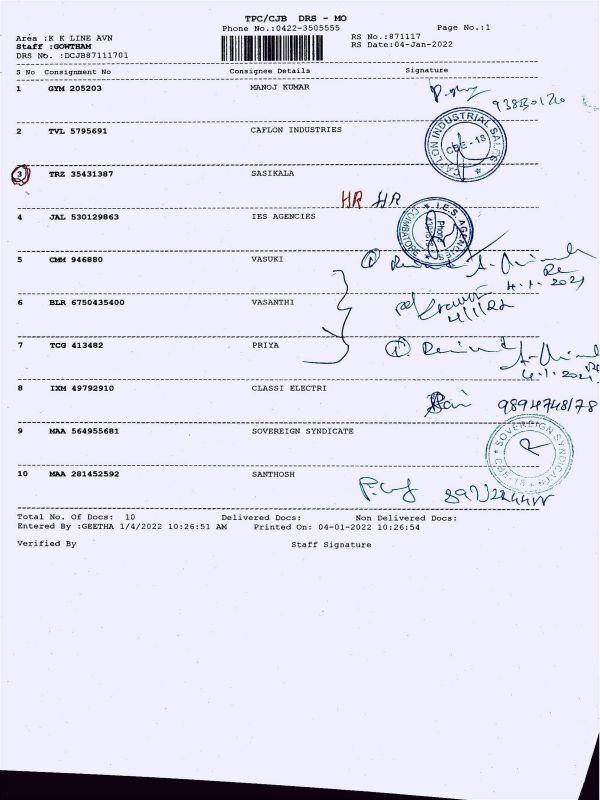 TPC/CJB DRS - MO
Phone No.:0422-3505555
Page No.:1
Area :K K LINE AVN
RS No.:871117
Staff :GOWTHAM
RS Date:04-Jan-2022
DRS No. :DCJB87111701
S No Consignment No Consignee Details Signature
1 GYM 205203 MANOJ KUMAR
2 TVL 5795691 CAFLON INDUSTRIES
CAFLON INDUSTRIAL SALES
CBE-18
3 TRZ 35431387 SASIKALA
HR HR
4 JAL 530129863 IES AGENCIES
I.E.S. AGENCIES
COIMBATORE
5 CMM 946880 VASUKI
4.1.2021
6 BLR 6750435400 VASANTHI
4/1/22
7 TCG 413482 PRIYA
4.1.2021
8 IXM 49792910 CLASSI ELECTRI
9894748178
9 MAA 564955681 SOVEREIGN SYNDICATE
SOVEREIGN SYNDICATE
CBE-18
10 MAA 281452592 SANTHOSH
Total No. Of Docs: 10 Delivered Docs: Non Delivered Docs:
Entered By :GEETHA 1/4/2022 10:26:51 AM Printed On: 04-01-2022 10:26:54
Verified By Staff Signature